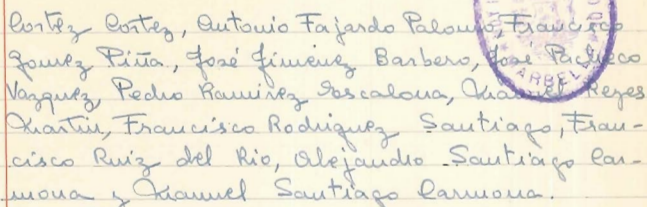 Cortez Cortez, Antonio Fajardo Palomo, Francisco
Gomez Piña, José Jiménez Barbero, José Pacheco
Vazquez, Pedro Ramirez Escalona, Manuel Reyes
Martin, Francisco Rodriguez Santiago, Fran-
cisco Ruiz del Rio, Alejandro Santiago Car-
mona y Manuel Santiago Carmona.
ARBEL